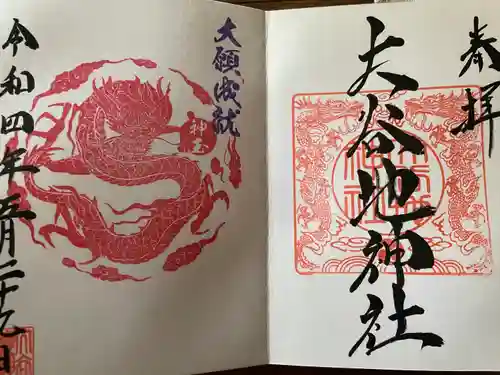 奉拝
大谷地神社
大願成就
神玉
令和四年五月二十九日